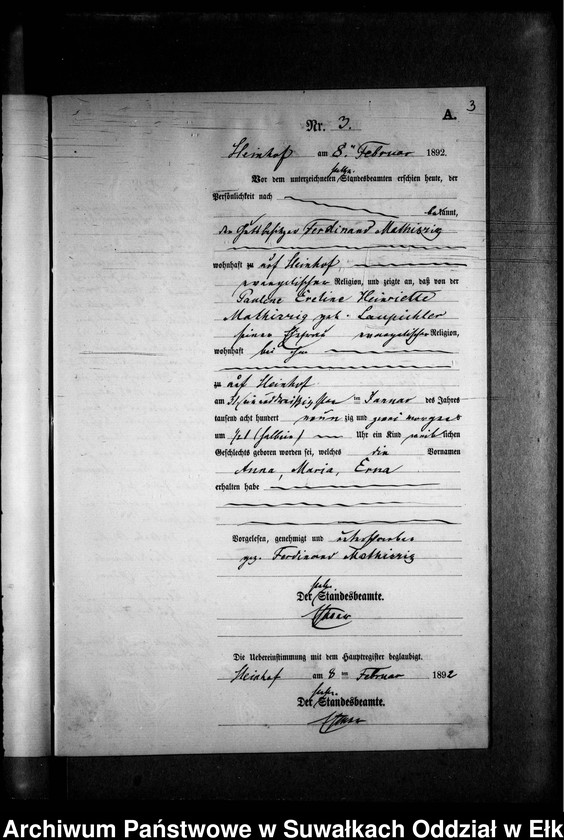 3
A.
Nr. 3.
Steinhof am 8ten Februar 1892.
Vor dem unterzeichneten stellv. Standesbeamten erschien heute, der
Persönlichkeit nach
bekannt,
der Gutsbesitzer Ferdinand Mathiszig
wohnhaft zu auf Steinhof,
evangelischer Religion, und zeigte an, daß von der
Pauline Eveline Heinriette
Mathiszig geb. Laupichler
seiner Ehefrau evangelischer Religion,
wohnhaft bei ihm
zu auf Steinhof
am 31 (einunddreißigsten) ten Januar des Jahres
tausend acht hundert neun zig und zwei
um (halbein) Uhr ein Kind weiblichen
Geschlechts geboren worden sei, welches die Vornamen
Anna, Maria, Erna
erhalten habe
Vorgelesen, genehmigt und unterschrieben
gez. Ferdinand Mathiszig
stellv.
Der Standesbeamte.
Die Uebereinstimmung mit dem Hauptregister beglaubigt.
Steinhof am 8 ten Februar 1892
stellv.
Der Standesbeamte.
Archiwum Państwowe w Suwałkach Oddział w Ełk